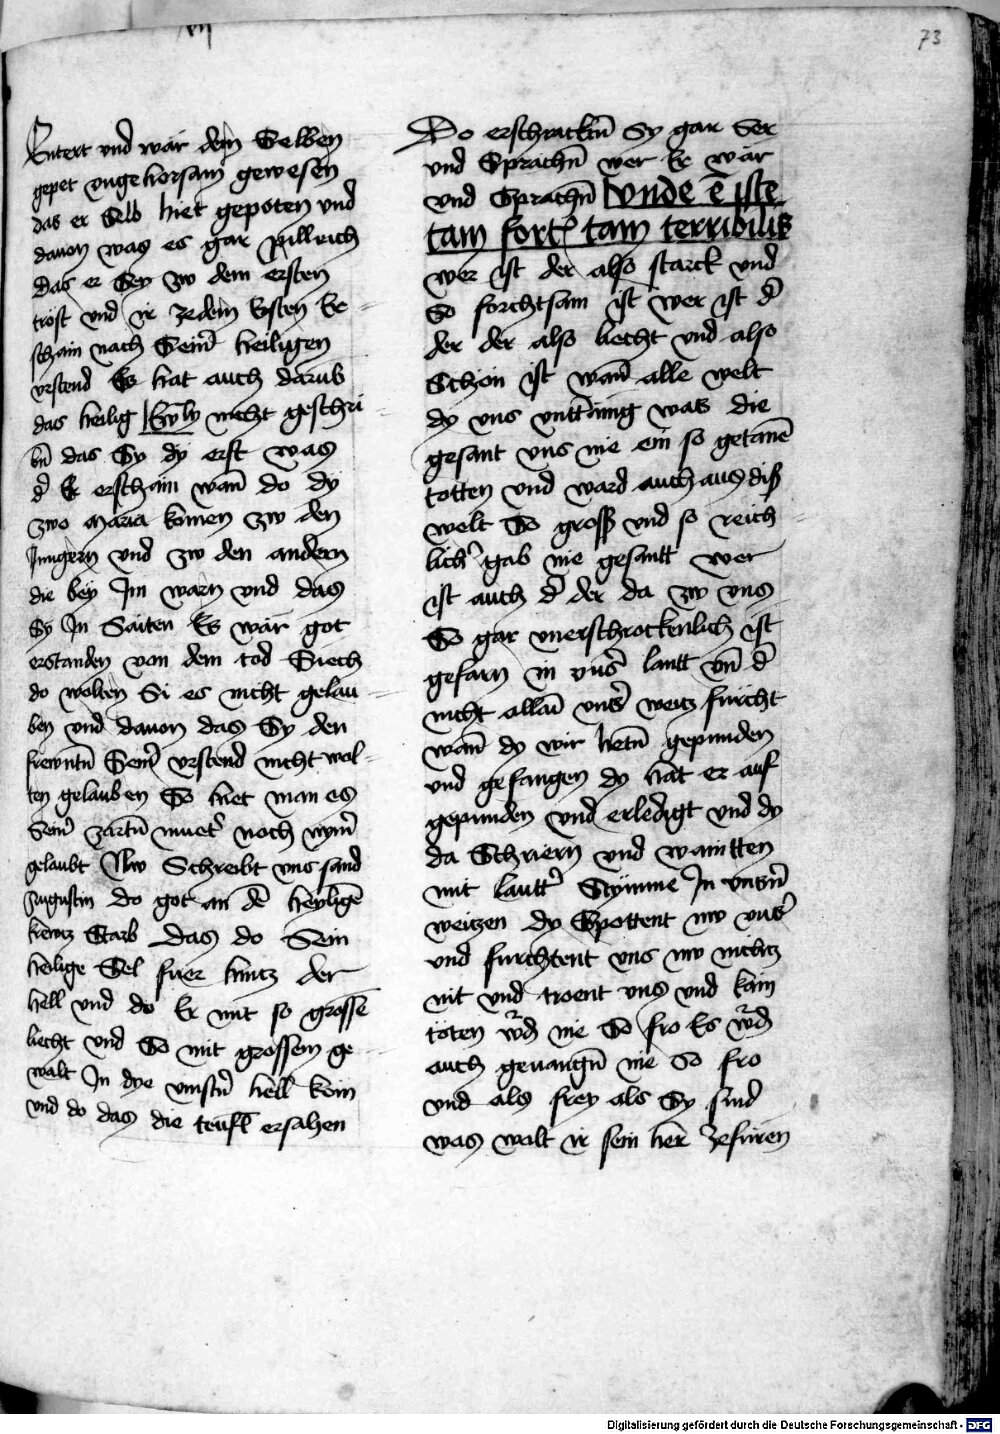 vij
73
Entert vnd wär dem Selben
gepet vngehorsam gewesen
das er Selb hiet gepoten vnd
dauon was es gar pillrich
das er Sey zw dem ersten
tröst vnd ir zedem Ersten Er
schain nach Seinr̄ heiligen
vrstend Es hat auch darub
das heilig Ewlỹ nicht geschri
bn̄ das Sy dÿ erst was
d̄ Er erschain wan̄ do dÿ
zwo maria komen zw den
Jungern vnd zw den andern
die bey Jm warn vnd das
Sy Jn Saiten Es wär got
erstanden von dem tod Siech
do wolten Si es nicht gelau
ben vnd dauon das Sy den
frewntn̄ Seinr̄ vrstend nicht wol
ten gelauben So hiet man es
Seinr̄ zartn̄ muetr̄ noch mynr̄
gelaubt Nw Schreibt vns sand
Augustin do got an dē heyligē
krewtz Starb Das do Sein
heilige Sel fuer hintz der
hell vnd do Er mit so grossē
liecht vnd So mit grossem ge
walt Jn dye vinstn̄ hell kom
vnd do das die teufl ersahen
Do erschracken̄ Sy gar Ser
vnd Sprachn̄ wer Er wär
vnd Sprachn̄ Vnde ē iste
tam fort tam terribilis
wer ist der also starck vnd
So forchtsam ist wer ist d̄
der der also liecht vnd also
Schön ist wan̄ alle welt
dy vns vnttänig was die
gesant vns nie ein so getanē
totten vnd ward auch aus diß
welt So groß vnd so reich
lichr̄ gab nie gesantt wer
ist auch d̄ der da zw vns
So gar vnerschrockenlich ist
gefarn in vnsr̄ lantt vn̄ d̄
nicht allain̄ vnsr̄ weitz fürcht
wan̄ dy wir hetn̄ gepunden
vnd gefangen dy hat er auf
gepunden vnd erledigt vnd dy
da Schriern vnd waintten
mit lauttr̄ Stymme Jn vnsn̄
weitzen dy Spottent nw vnsr̄
vnd furchtent vns nw nichtz
nit vnd troent vns vnd kain
töten wr̄d nie So fro Es wr̄d
auch geuangn̄ nie So fro
vnd als frey als Sy sind
was walt ir sein her zefüren
Digitalisierung gefördert durch die Deutsche Forschungsgemeinschaft - DFG